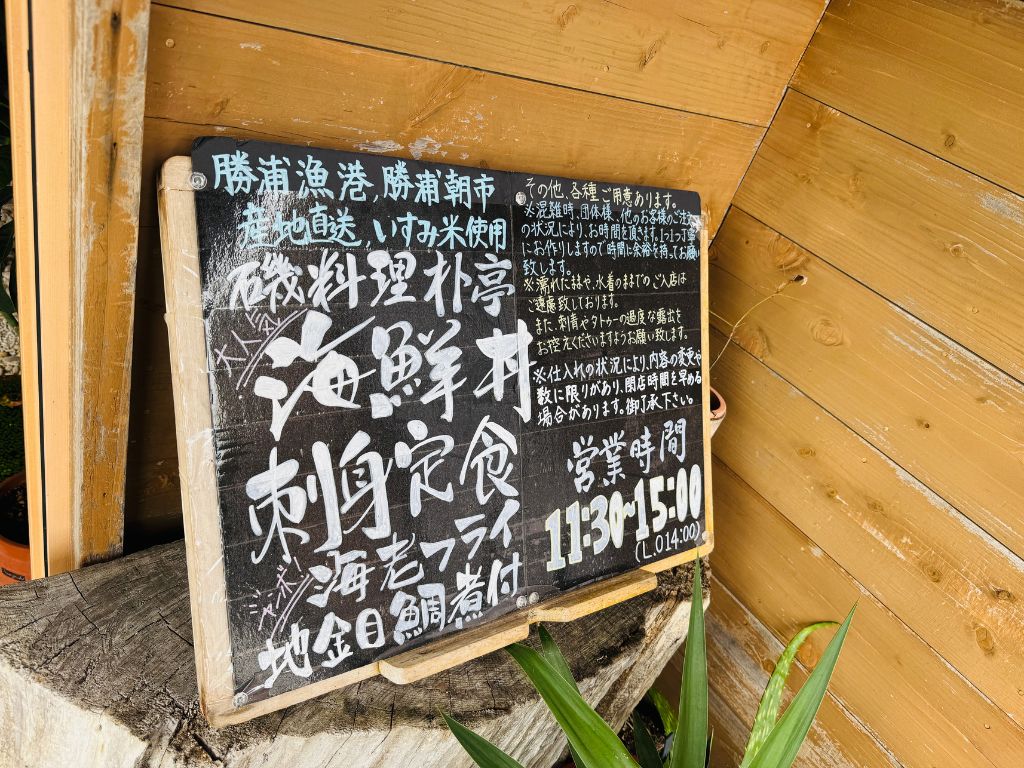 勝浦漁港,勝浦朝市
産地直送,いすみ米使用
磯料理 朴亭
大人気!
海鮮丼
刺身定食
ジャンボ!
海老フライ
地金目鯛煮付
その他、各種ご用意あります。
※混雑時、団体様、他のお客様のご注文
の状況により、お時間を頂きます。1つ1つ丁寧
にお作りしますので時間に余裕を持ってお願い
致します。
※濡れたままや、水着のままでのご入店は
ご遠慮致しております。
また、刺青やタトゥーの過度な露出を
お控えくださいますようお願い致します。
※仕入れの状況により、内容の変更や
数に限りがあり、閉店時間を早める
場合があります。御了承下さい。
営業時間
11:30~15:00
(L.O14:00)